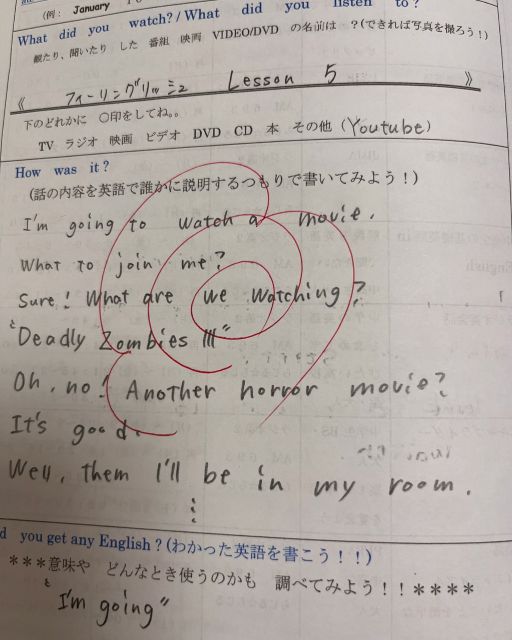 (例： January
What did you watch? / What did you listen to ?
観たり、聞いたり した 番組 映画 VIDEO/DVD の名前は ？(できれば写真を撮ろう！)
《 フィーリングリッシュ Lesson 5 》
下のどれかに ○印をしてね。。
TV ラジオ 映画 ビデオ DVD CD 本 その他 (Youtube)
How was it ?
(話の内容を英語で誰かに説明するつもりで書いてみよう！)
I'm going to watch a movie.
What to join me?
Sure! What are we watching?
"Deadly Zombies III"
Oh, no! Another horror movie?
It's good.
Well, them I'll be in my room.
you get any English ? (わかった英語を書こう！！)
＊＊＊意味や どんなとき使うのかも 調べてみよう！！＊＊＊＊
"I'm going"